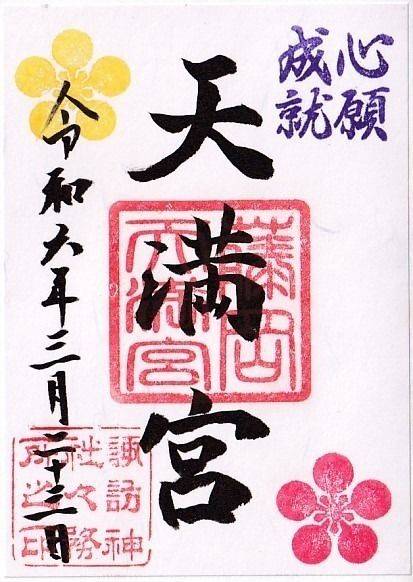 心願
成就
天満宮
藤岡
天満宮
令和六年三月二十三日
諏訪神
社々務
所之印